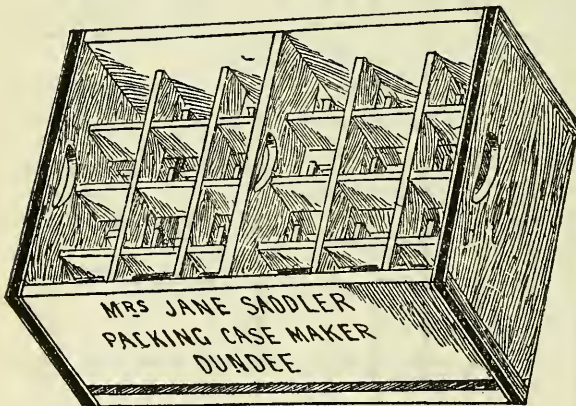 MRS JANE SADDLER
PACKING CASE MAKER
DUNDEE